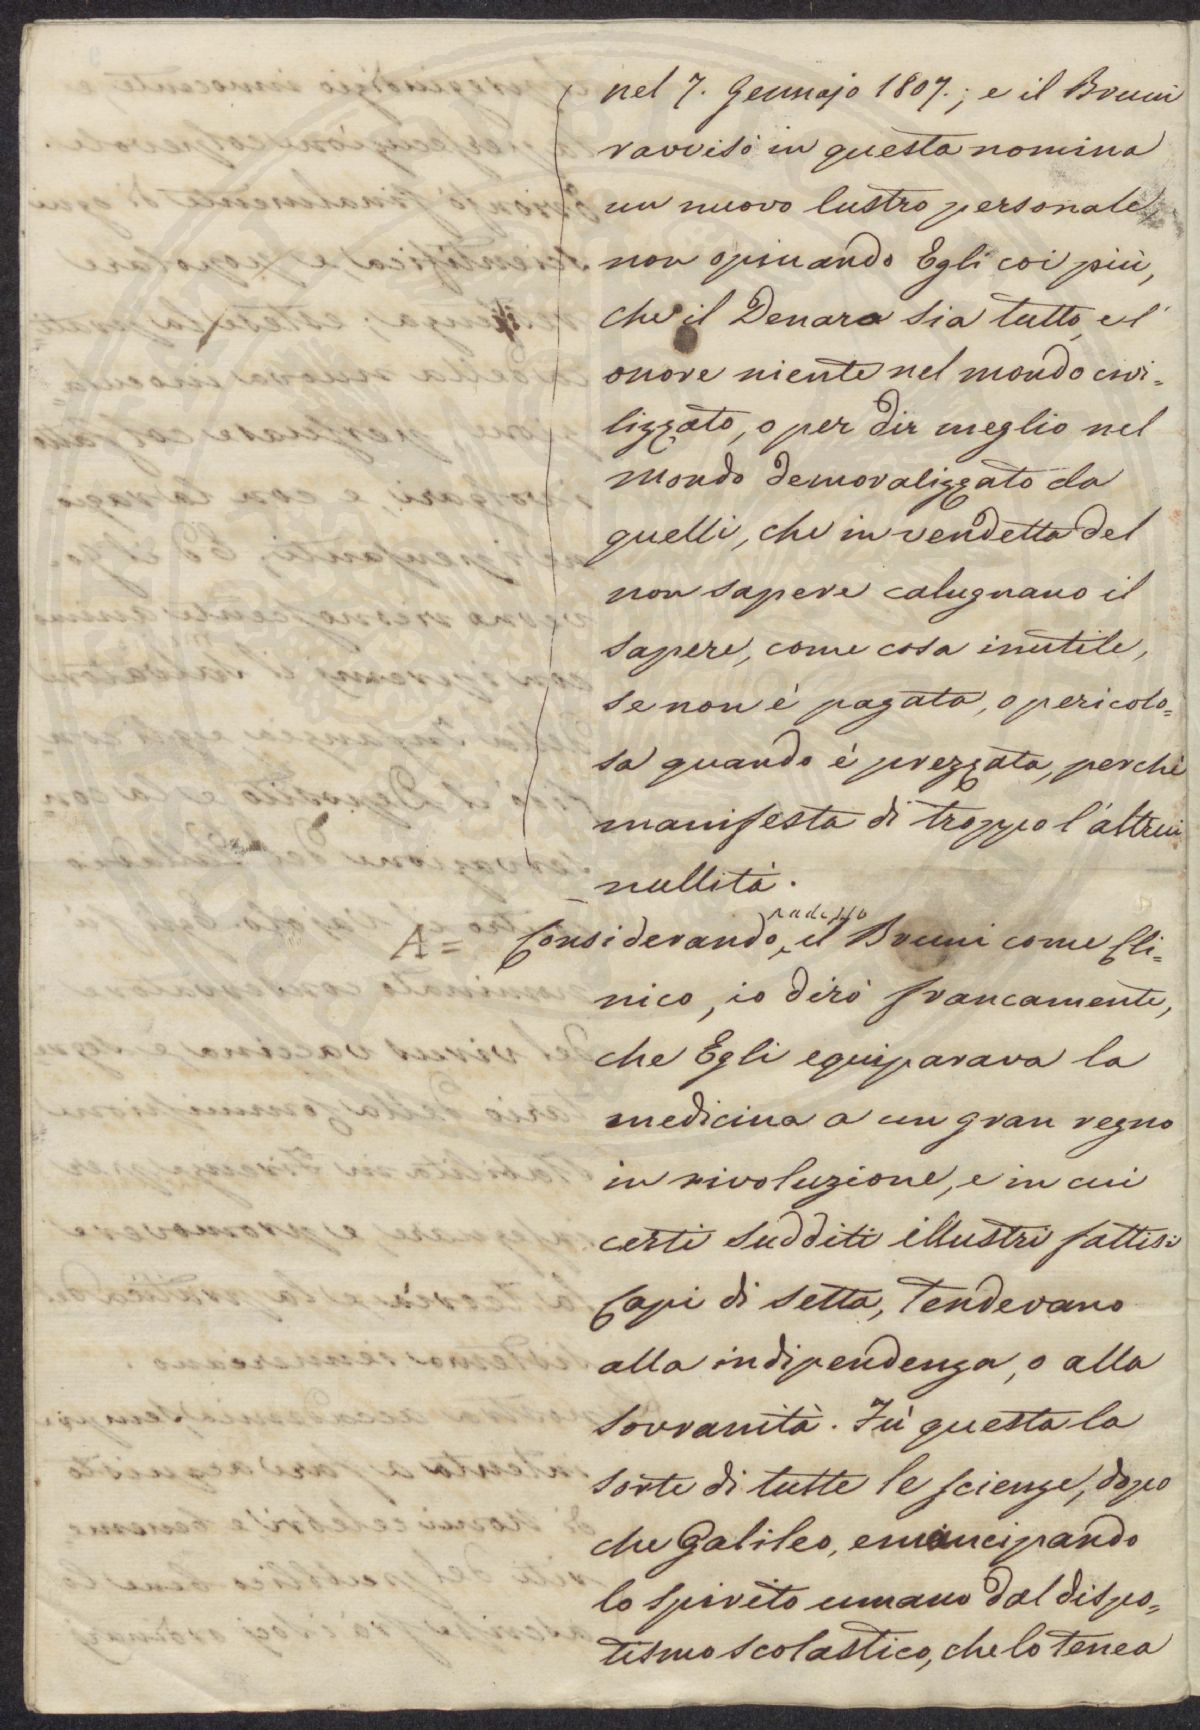 nel 7. Gennajo 1807.; e il Bruni
ravvisò in questa nomina
un nuovo lustro personale,
non opinando Egli coi più,
che il Denaro sia tutto, e l'
onore niente nel mondo civi=
lizzato, o per dir meglio nel
mondo demoralizzato da
quelli, che in vendetta del
non sapere calugnano il
sapere, come cosa inutile,
se non è pagata, o pericolo=
sa quando è prezzata, perchè
manifesta di troppo l'altrui
nullità.
A = Considerando, il Bruni come Cli=
nico, io dirò francamente,
che Egli equiparava la
medicina a un gran regno
in rivoluzione, e in cui
certi sudditi illustri fattisi
Capi di setta, tendevano
alla indipendenza, o alla
sovranità. Fù questa la
sorte di tutte le scienze, dopo
che Galileo, emancipando
lo spirito umano dal dispo=
tismo scolastico, che lo tenea